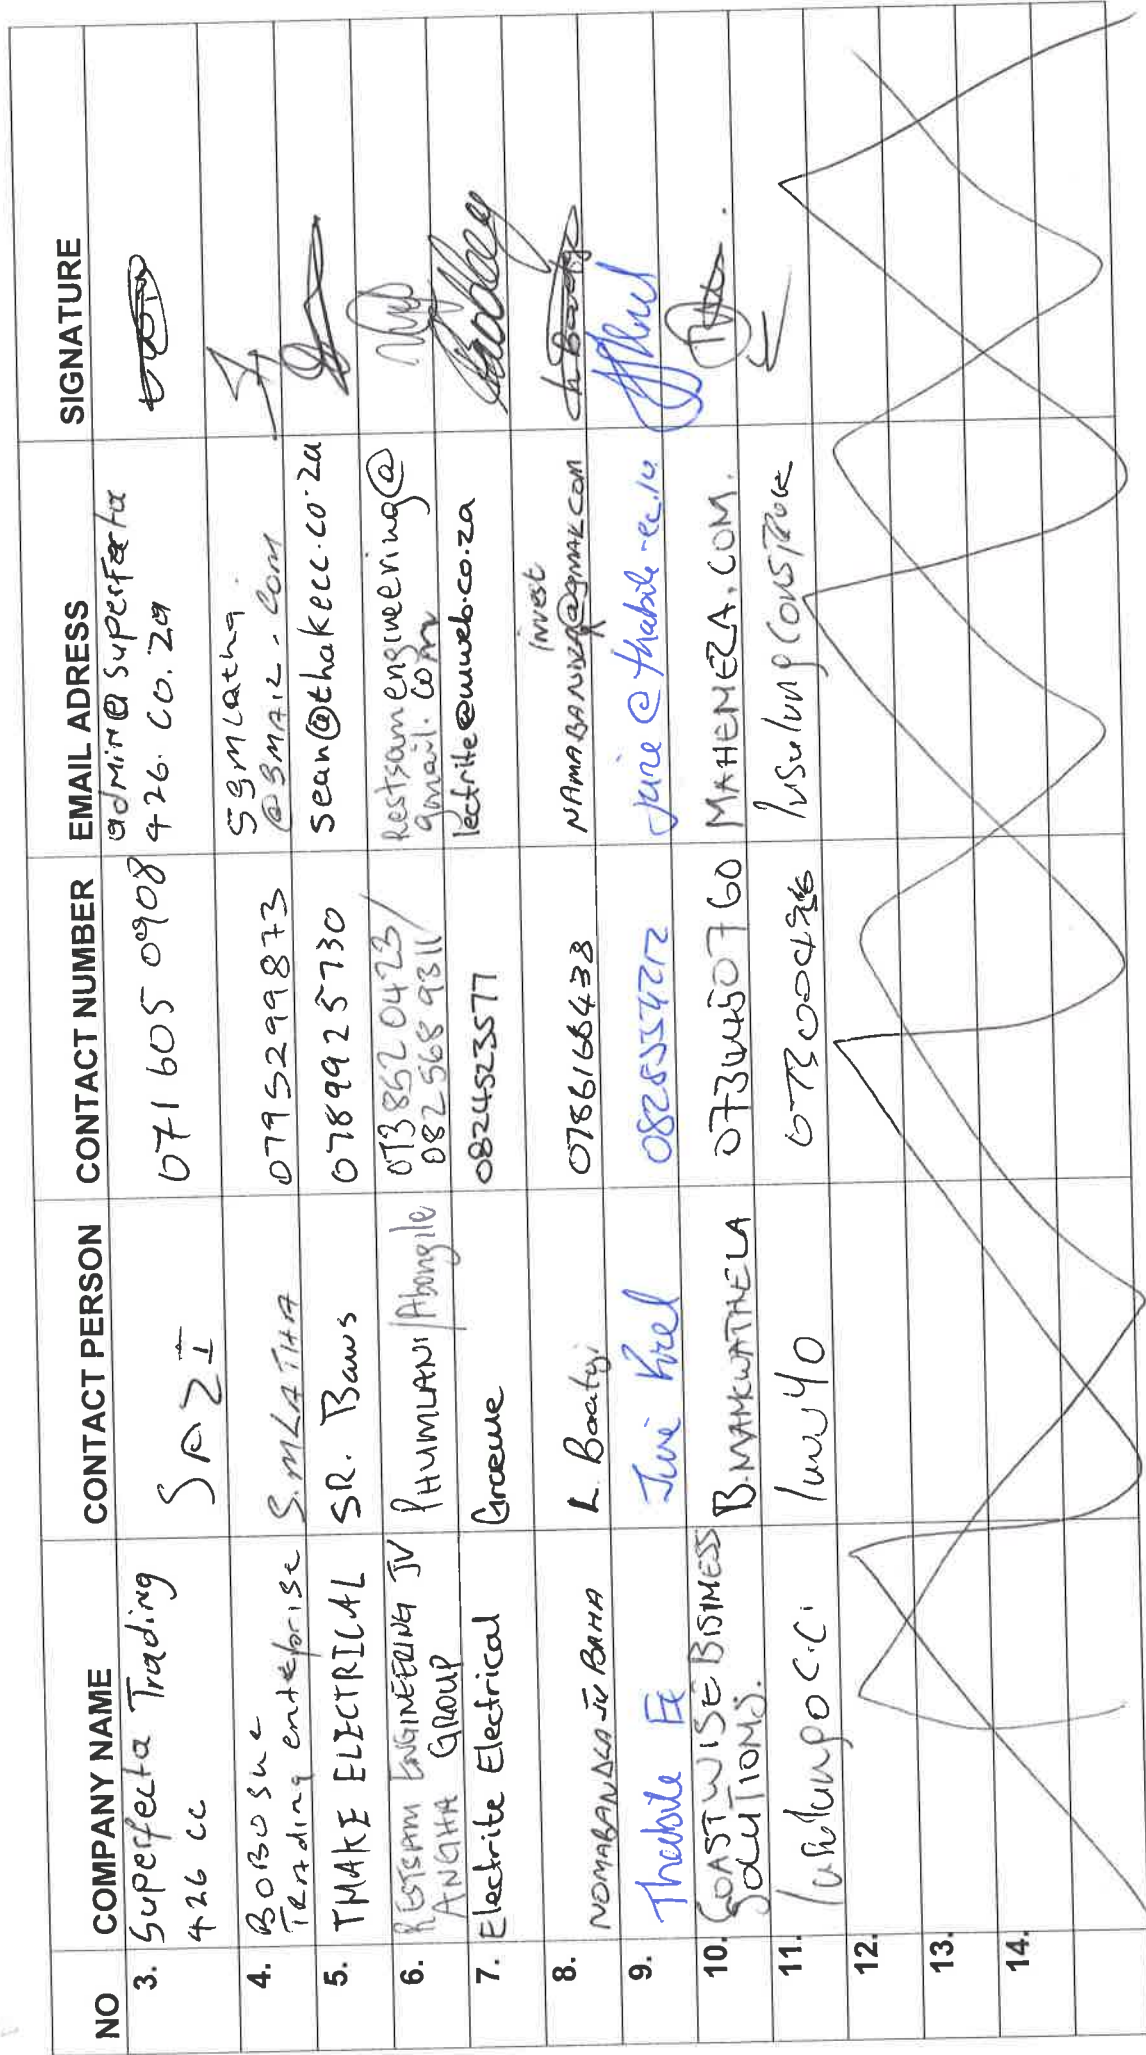 NO COMPANY NAME CONTACT PERSON CONTACT NUMBER EMAIL ADRESS SIGNATURE
3. Superfecta Trading
426 CC
SAZI
071 605 0908
admin@superfecta
426.co.za
4. BOBOSHE
Trading enterprise
S.MLATHA
0795299873
sgmlatha
@gmail.com
5. TMAKE ELECTRICAL
SR. Baws
0789925730
sean@thakecc.co.za
6. RESTSAM ENGINEERING JV
ANGHA GROUP
PHUMLANI/Abongile
073 852 0423/
082 568 9311
Restsamengineering@
gmail.com
7. Electrite Electrical
Graeme
0824523577
lectrite@mweb.co.za
8. NOMABANDLA JV BAHA
L. Booi
0786166433
invest
@gmail.com
9. Thabile
June
june@thabile-ec.
10. COASTWISE BISINESS
SOLUTIONS.
B.MAMKWATHELA
MAHEMEZA.COM.
11. C.C.
Luvuyo
12.
13.
14.